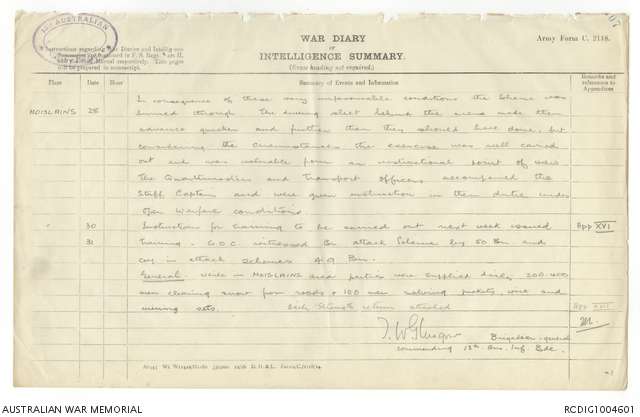 WAR DIARY
OF
INTELLIGENCE SUMMARY.
(Erase heading not required.)
Army Form C. 2118.
AUSTRALIAN
Instructions regarding War Diaries and Intelligence
Summaries are contained in F. S. Regs., Part II,
and the Staff Manual respectively. Title pages
will be prepared in manuscript.
Place Date Hour Summary of Events and Information Remarks and references to Appendices
In consequence of these very unfavourable conditions the scheme was
MOISLAINS 28 hurried through. The driving sleet behind the men made them
advance quicker and further than they should have done, but
considering the circumstances the exercise was well carried
out and was valuable from an instructional point of view.
The Quartermasters and Transport Officers accompanied the
Staff Captain and were given instruction in their duties under
open warfare conditions
" 30 Instructions for training to be carried out next week issued App XVI
31 Training. G.O.C. witnessed Bn attack scheme by 50 Bn and
Coy in attack schemes 49 Bn.
General. While in MOISLAINS area parties were supplied daily 200-400
men clearing snow from roads & 100 men relaying pickets, wire and
Each Strength return attached App XVII
Brigadier-General
commanding 13th Aus. Inf. Bde.
AUSTRALIAN WAR MEMORIAL
RCDIG1004601